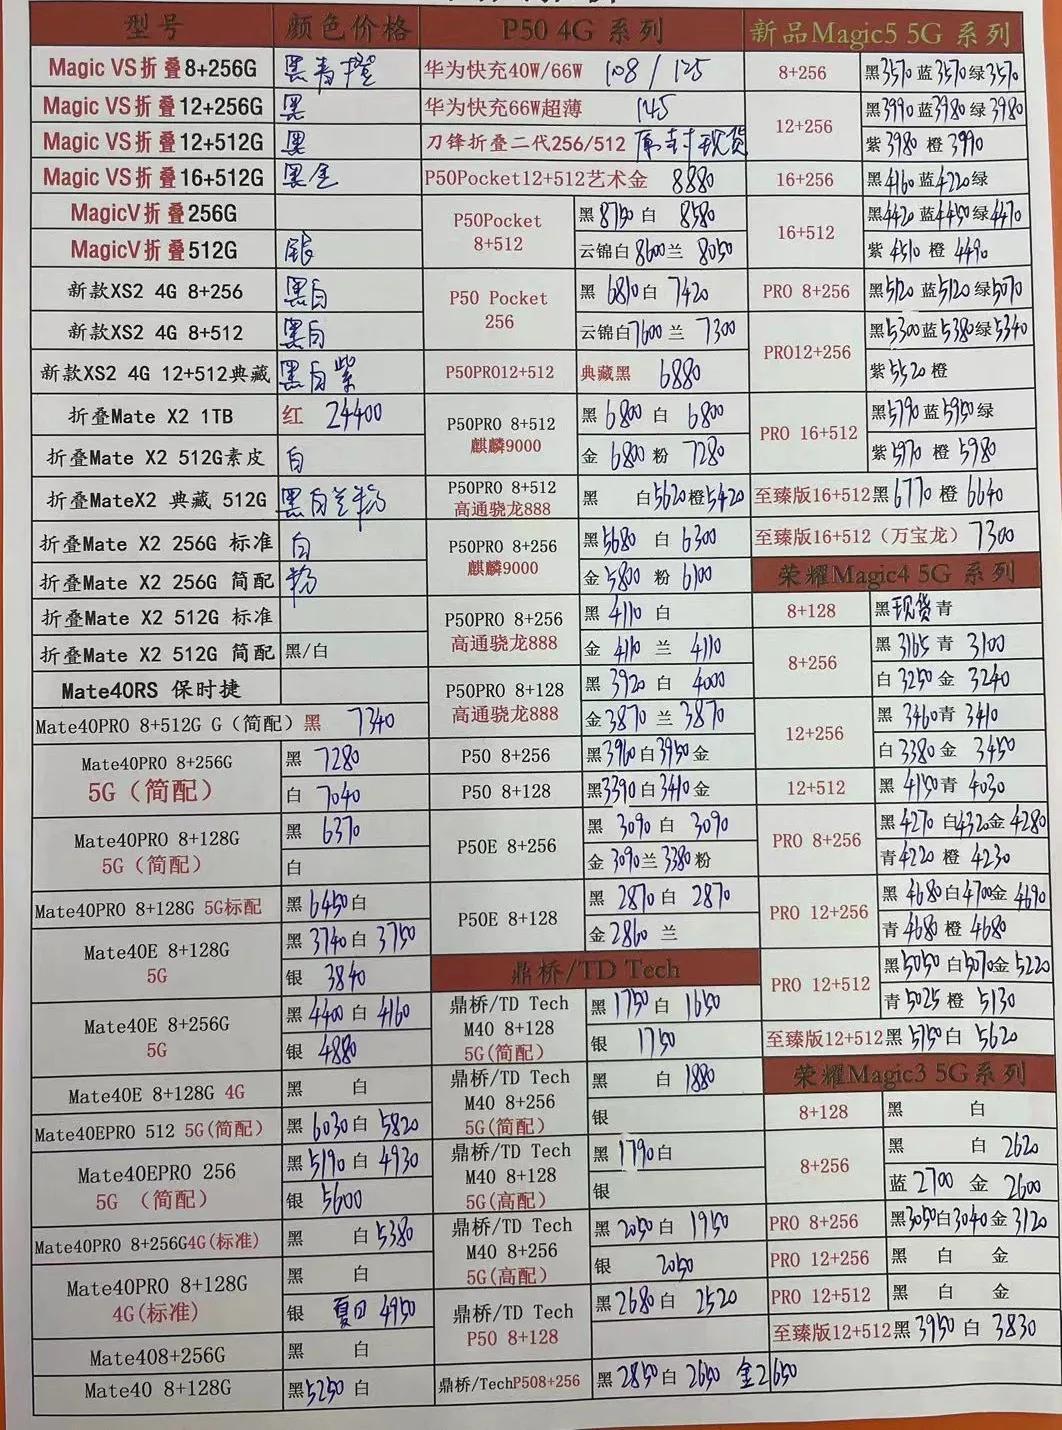 型号 颜色价格 P50 4G 系列 新品Magic5 5G 系列
Magic VS折叠8+256G 黑青橙
Magic VS折叠12+256G 黑
Magic VS折叠12+512G 黑
Magic VS折叠16+512G 黑金
MagicV折叠256G
MagicV折叠512G 银
新款XS2 4G 8+256 黑白
新款XS2 4G 8+512 黑白
新款XS2 4G 12+512典藏 黑白紫
折叠Mate X2 1TB 红 24400
折叠Mate X2 512G素皮 白
折叠MateX2 典藏 512G 黑白兰粉
折叠Mate X2 256G 标准 白
折叠Mate X2 256G 简配 粉
折叠Mate X2 512G 标准
折叠Mate X2 512G 简配 黑/白
Mate40RS 保时捷
Mate40PRO 8+512G G（简配）黑 7340
Mate40PRO 8+256G
5G（简配）
黑 7280
白 7040
Mate40PRO 8+128G
5G（简配）
黑 6370
白
Mate40PRO 8+128G 5G标配 黑6450白
Mate40E 8+128G
5G
黑3740白 3750
银 3840
Mate40E 8+256G
5G
黑4400白 4160
银 4880
Mate40E 8+128G 4G 黑 白
Mate40EPRO 512 5G(简配) 黑6030白5820
Mate40EPRO 256
5G （简配）
黑5190白4930
银 5600
Mate40PRO 8+256G4G(标准) 黑 白5380
Mate40PRO 8+128G
4G(标准)
黑 白
银 夏日 4950
Mate408+256G 黑 白
Mate40 8+128G 黑5250 白
华为快充40W/66W 108/135
华为快充66W超薄 145
刀锋折叠二代256/512 原封现货
P50Pocket12+512艺术金 8880
P50Pocket
8+512
黑 8750 白 8580
云锦白8600兰 8050
P50 Pocket
256
黑 6810白 7420
云锦白7600兰 7300
P50PRO12+512 典藏黑 6880
P50PRO 8+512
麒麟9000
黑 6800 白 6800
金 6800 粉 7280
P50PRO 8+512
高通骁龙888
黑 白5620橙5420
P50PRO 8+256
麒麟9000
黑5680 白 6300
金5800 粉 6100
P50PRO 8+256
高通骁龙888
黑 4110 白
金 4110 兰 4110
P50PRO 8+128
高通骁龙888
黑 3920 白 4000
金3870 兰 3870
P50 8+256 黑3960白3950金
P50 8+128 黑3390白3410金
P50E 8+256
黑 3090 白 3090
金 3090兰3380粉
P50E 8+128
黑 2870白 2870
金2860 兰
鼎桥/TD Tech
鼎桥/TD Tech
M40 8+128
5G(简配)
黑 1750白 1650
银 1750
鼎桥/TD Tech
M40 8+256
5G(简配)
黑 白 1880
银
鼎桥/TD Tech
M40 8+128
5G(高配)
黑 1790白
银
鼎桥/TD Tech
M40 8+256
5G(高配)
黑 2050白 1950
银 2050
鼎桥/TD Tech
P50 8+128
黑2680白 2520
鼎桥/TechP508+256 黑 2850白 2650 金2650
8+256 黑3570蓝3570绿3570
12+256
黑3990蓝3980绿3980
紫 3980 橙 3990
16+256 黑4160蓝4220绿
16+512
黑4420蓝4450绿4470
紫 4510 橙 4490
PRO 8+256 黑5120蓝5120绿5070
PRO12+256
黑5300蓝5380绿5340
紫5520橙
PRO 16+512
黑5790蓝5950绿
紫5970橙 5980
至臻版16+512黑6770 橙 6640
至臻版16+512（万宝龙） 7300
荣耀Magic4 5G 系列
8+128 黑现货青
8+256
黑 3165 青 3100
白 3250金 3240
12+256
黑 3460青 3410
白3380金 3450
12+512 黑 4150青 4030
PRO 8+256
黑4270白4320金4280
青4220 橙 4230
PRO 12+256
黑 4680白4700金4690
青4680 橙 4680
PRO 12+512
黑5050白5070金5220
青5025 橙 5130
至臻版12+512黑 5750白 5620
荣耀Magic3 5G系列
8+128 黑 白
8+256
黑 白 2620
蓝 2700 金 2600
PRO 8+256 黑3050白3040金3120
PRO 12+256 黑 白 金
PRO 12+512 黑 白 金
至臻版12+512黑 3950 白 3830